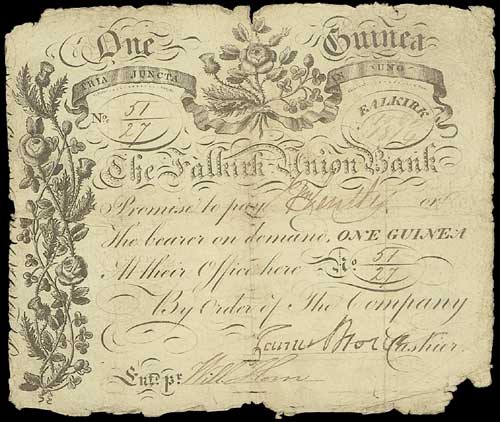 One Guinea
TRIA JUNCTA IN UNO
No. 51/27
FALKIRK
1816
The Falkirk Union Bank
Promise to pay or
The bearer on demand, ONE GUINEA
At their Office here No. 51/27
By Order of The Company
Cashier.
Entd. pr. Will